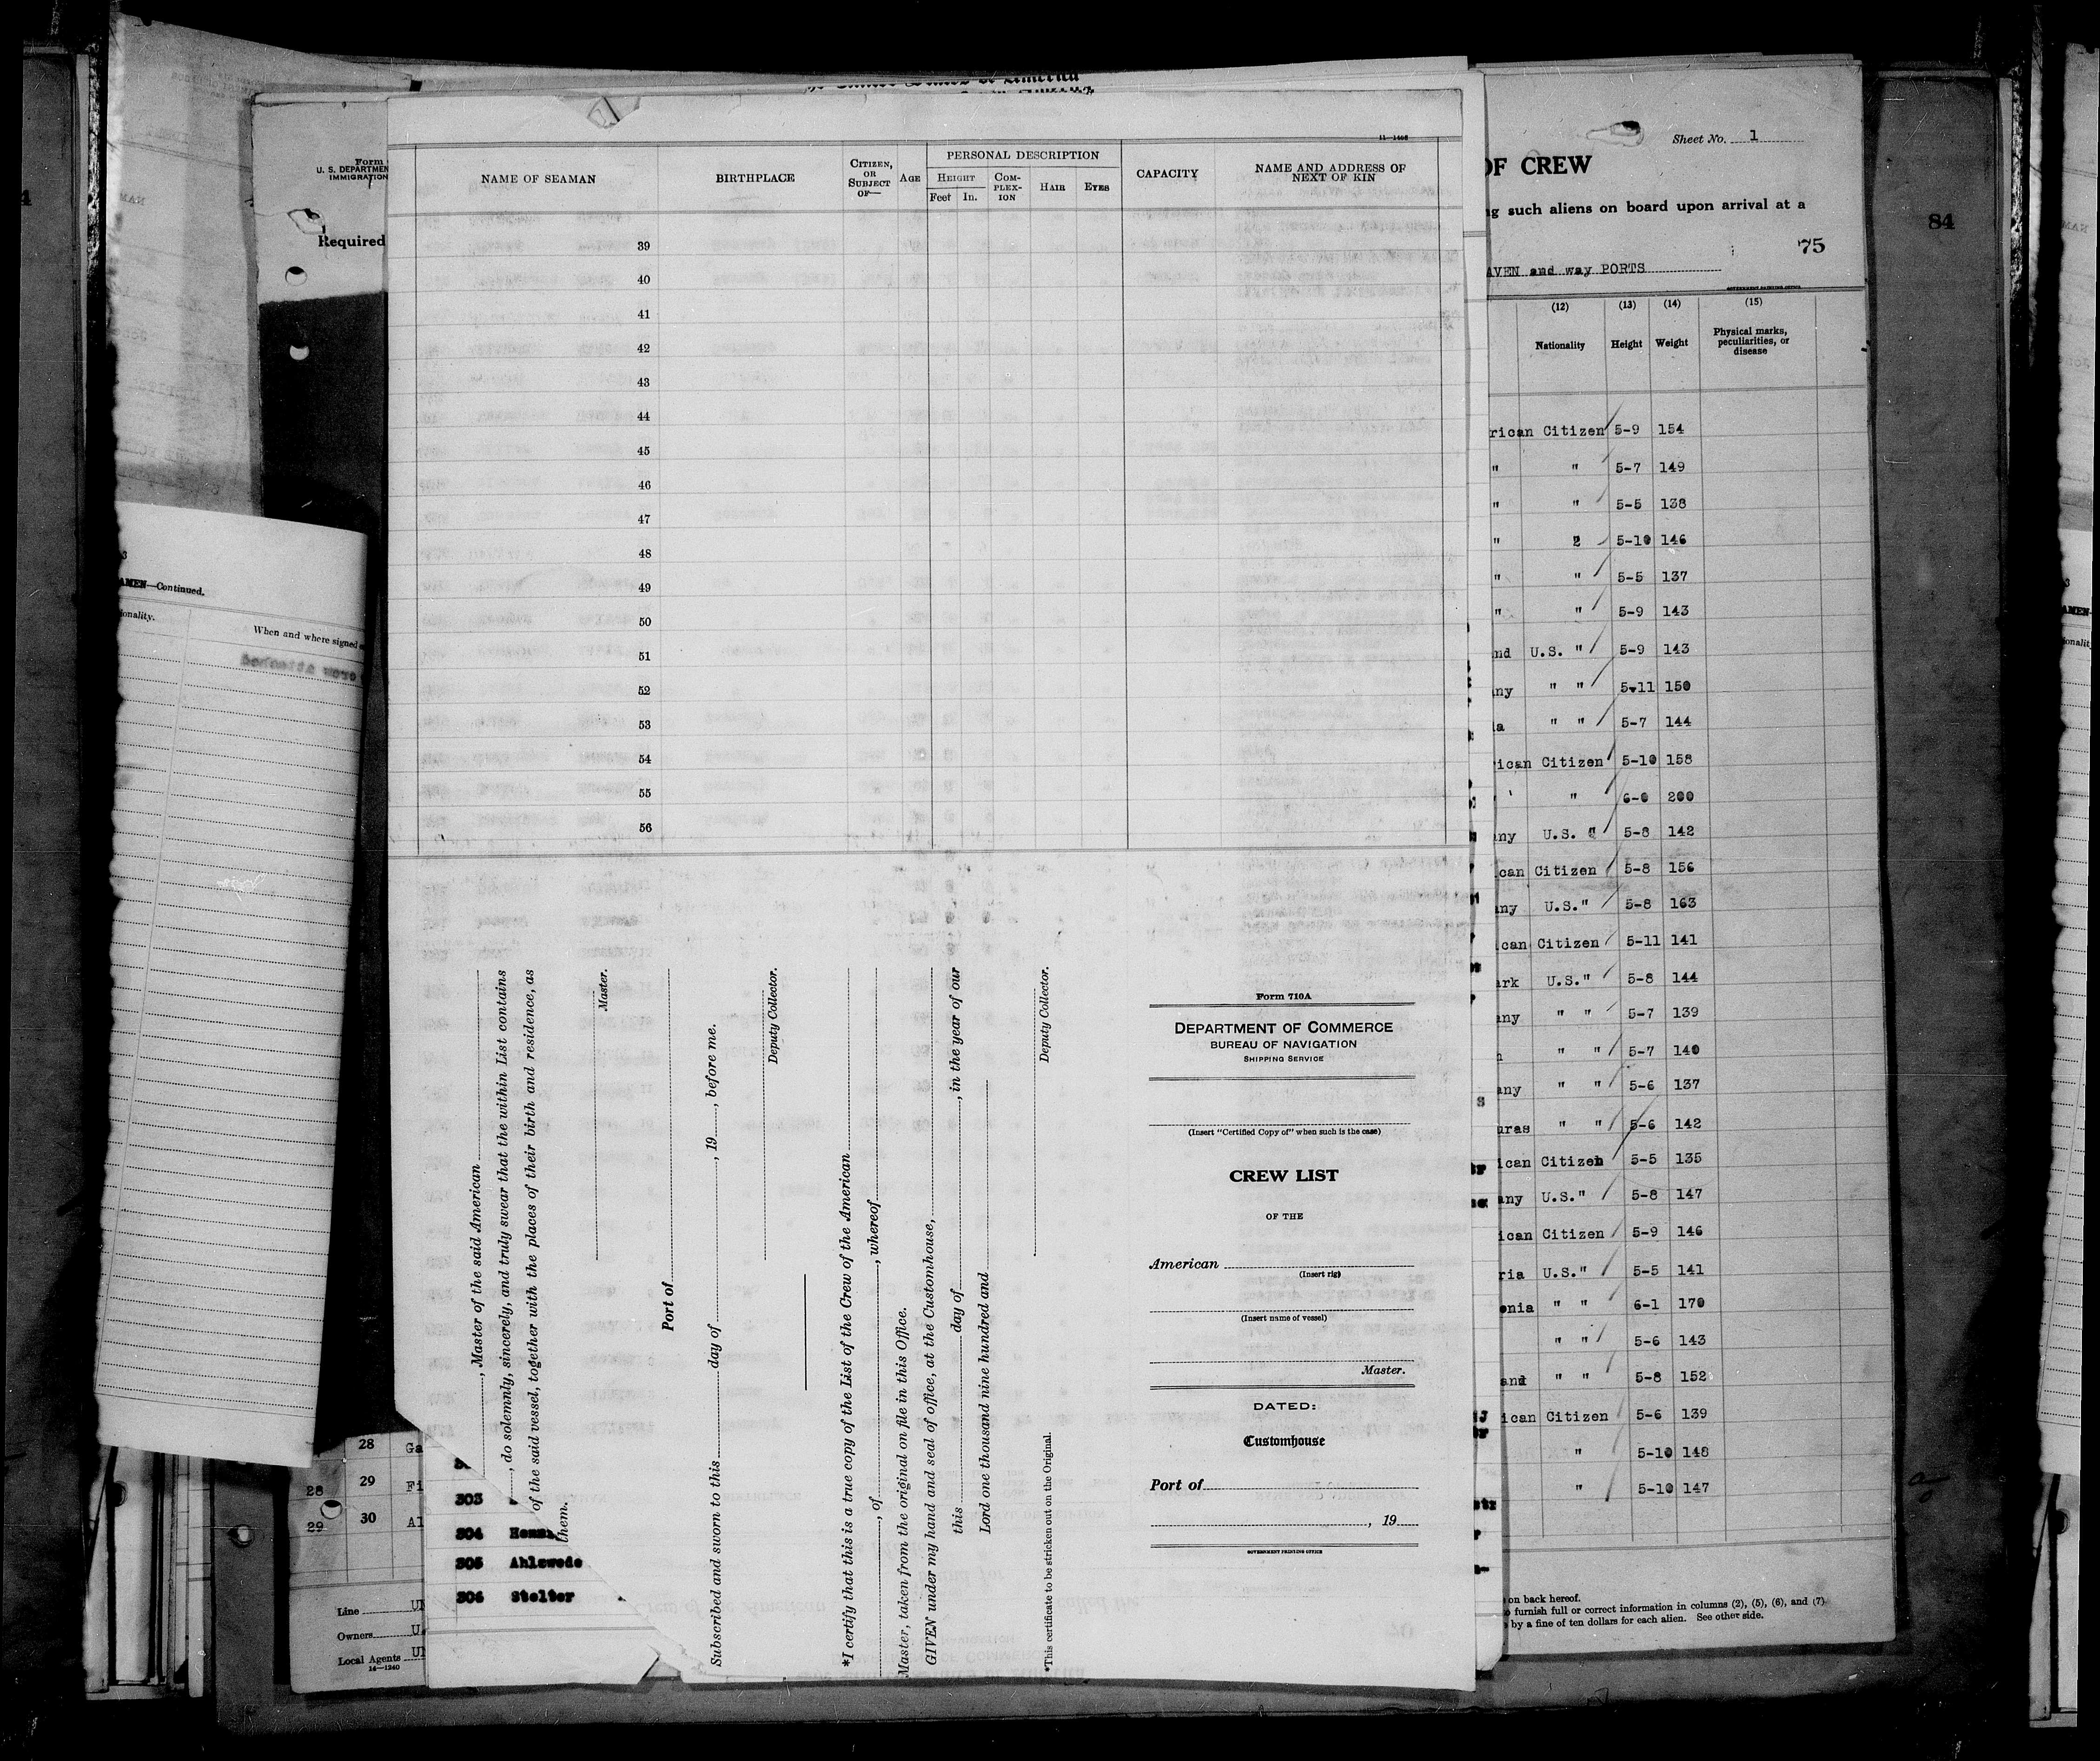 The United States of America
11—1466
NAME OF SEAMAN
BIRTHPLACE
CITIZEN, OR SUBJECT OF—
AGE
PERSONAL DESCRIPTION
HEIGHT
Feet
In.
COM-PLEX-ION
HAIR
EYES
CAPACITY
NAME AND ADDRESS OF NEXT OF KIN
39
40
41
42
43
44
45
46
47
48
49
50
51
52
53
54
55
56
, Master of the said American
, do solemnly, sincerely, and truly swear that the within List contains
of the said vessel, together with the places of their birth and residence, as
them.
Master.
Port of
Subscribed and sworn to this day of , 19 , before me.
Deputy Collector.
*I certify that this is a true copy of the List of the Crew of the American
, of , whereof
Master, taken from the original on file in this Office.
GIVEN under my hand and seal of office, at the Customhouse,
this day of , in the year of our
Lord one thousand nine hundred and
Deputy Collector.
*This certificate to be stricken out on the Original.
Form 710A
DEPARTMENT OF COMMERCE
BUREAU OF NAVIGATION
SHIPPING SERVICE
(Insert "Certified Copy of" when such is the case)
CREW LIST
OF THE
American
(Insert rig)
(Insert name of vessel)
Master.
DATED:
Customhouse
Port of
, 19
GOVERNMENT PRINTING OFFICE
Form
U. S. DEPARTMEN
IMMIGRATION
Required
3
AMEN—Continued.
ionality.
When and where signed
28 Ga
28 29 Fi
29 30 Al
303
304
305 Ahlswede
306 Stelter
Line
Owners
Local Agents
14—1240
Sheet No. 1
OF CREW
ng such aliens on board upon arrival at a
75
84
AVEN and way PORTS
GOVERNMENT PRINTING OFFICE
(12) (13) (14) (15)
Nationality Height Weight Physical marks, peculiarities, or disease
rican Citizen 5-9 154
" " 5-7 149
" " 5-5 138
" 2 5-10 146
" " 5-5 137
" " 5-9 143
nd U.S. " 5-9 143
ny " " 5-11 150
a " " 5-7 144
ican Citizen 5-10 158
' " 6-0 200
ny U.S. " 5-8 142
can Citizen 5-8 156
any U.S." 5-8 163
can Citizen 5-11 141
ark U.S." 5-8 144
any " " 5-7 139
" " 5-7 140
any " " 5-6 137
uras " " 5-6 142
ican Citizen 5-5 135
any U.S." 5-8 147
ican Citizen 5-9 146
ria U.S." 5-5 141
onia " " 6-1 170
" " 5-6 143
and " " 5-8 152
ican Citizen 5-6 139
" 5-10 148
" 5-10 147
on back hereof.
o furnish full or correct information in columns (2), (5), (6), and (7)
by a fine of ten dollars for each alien. See other side.